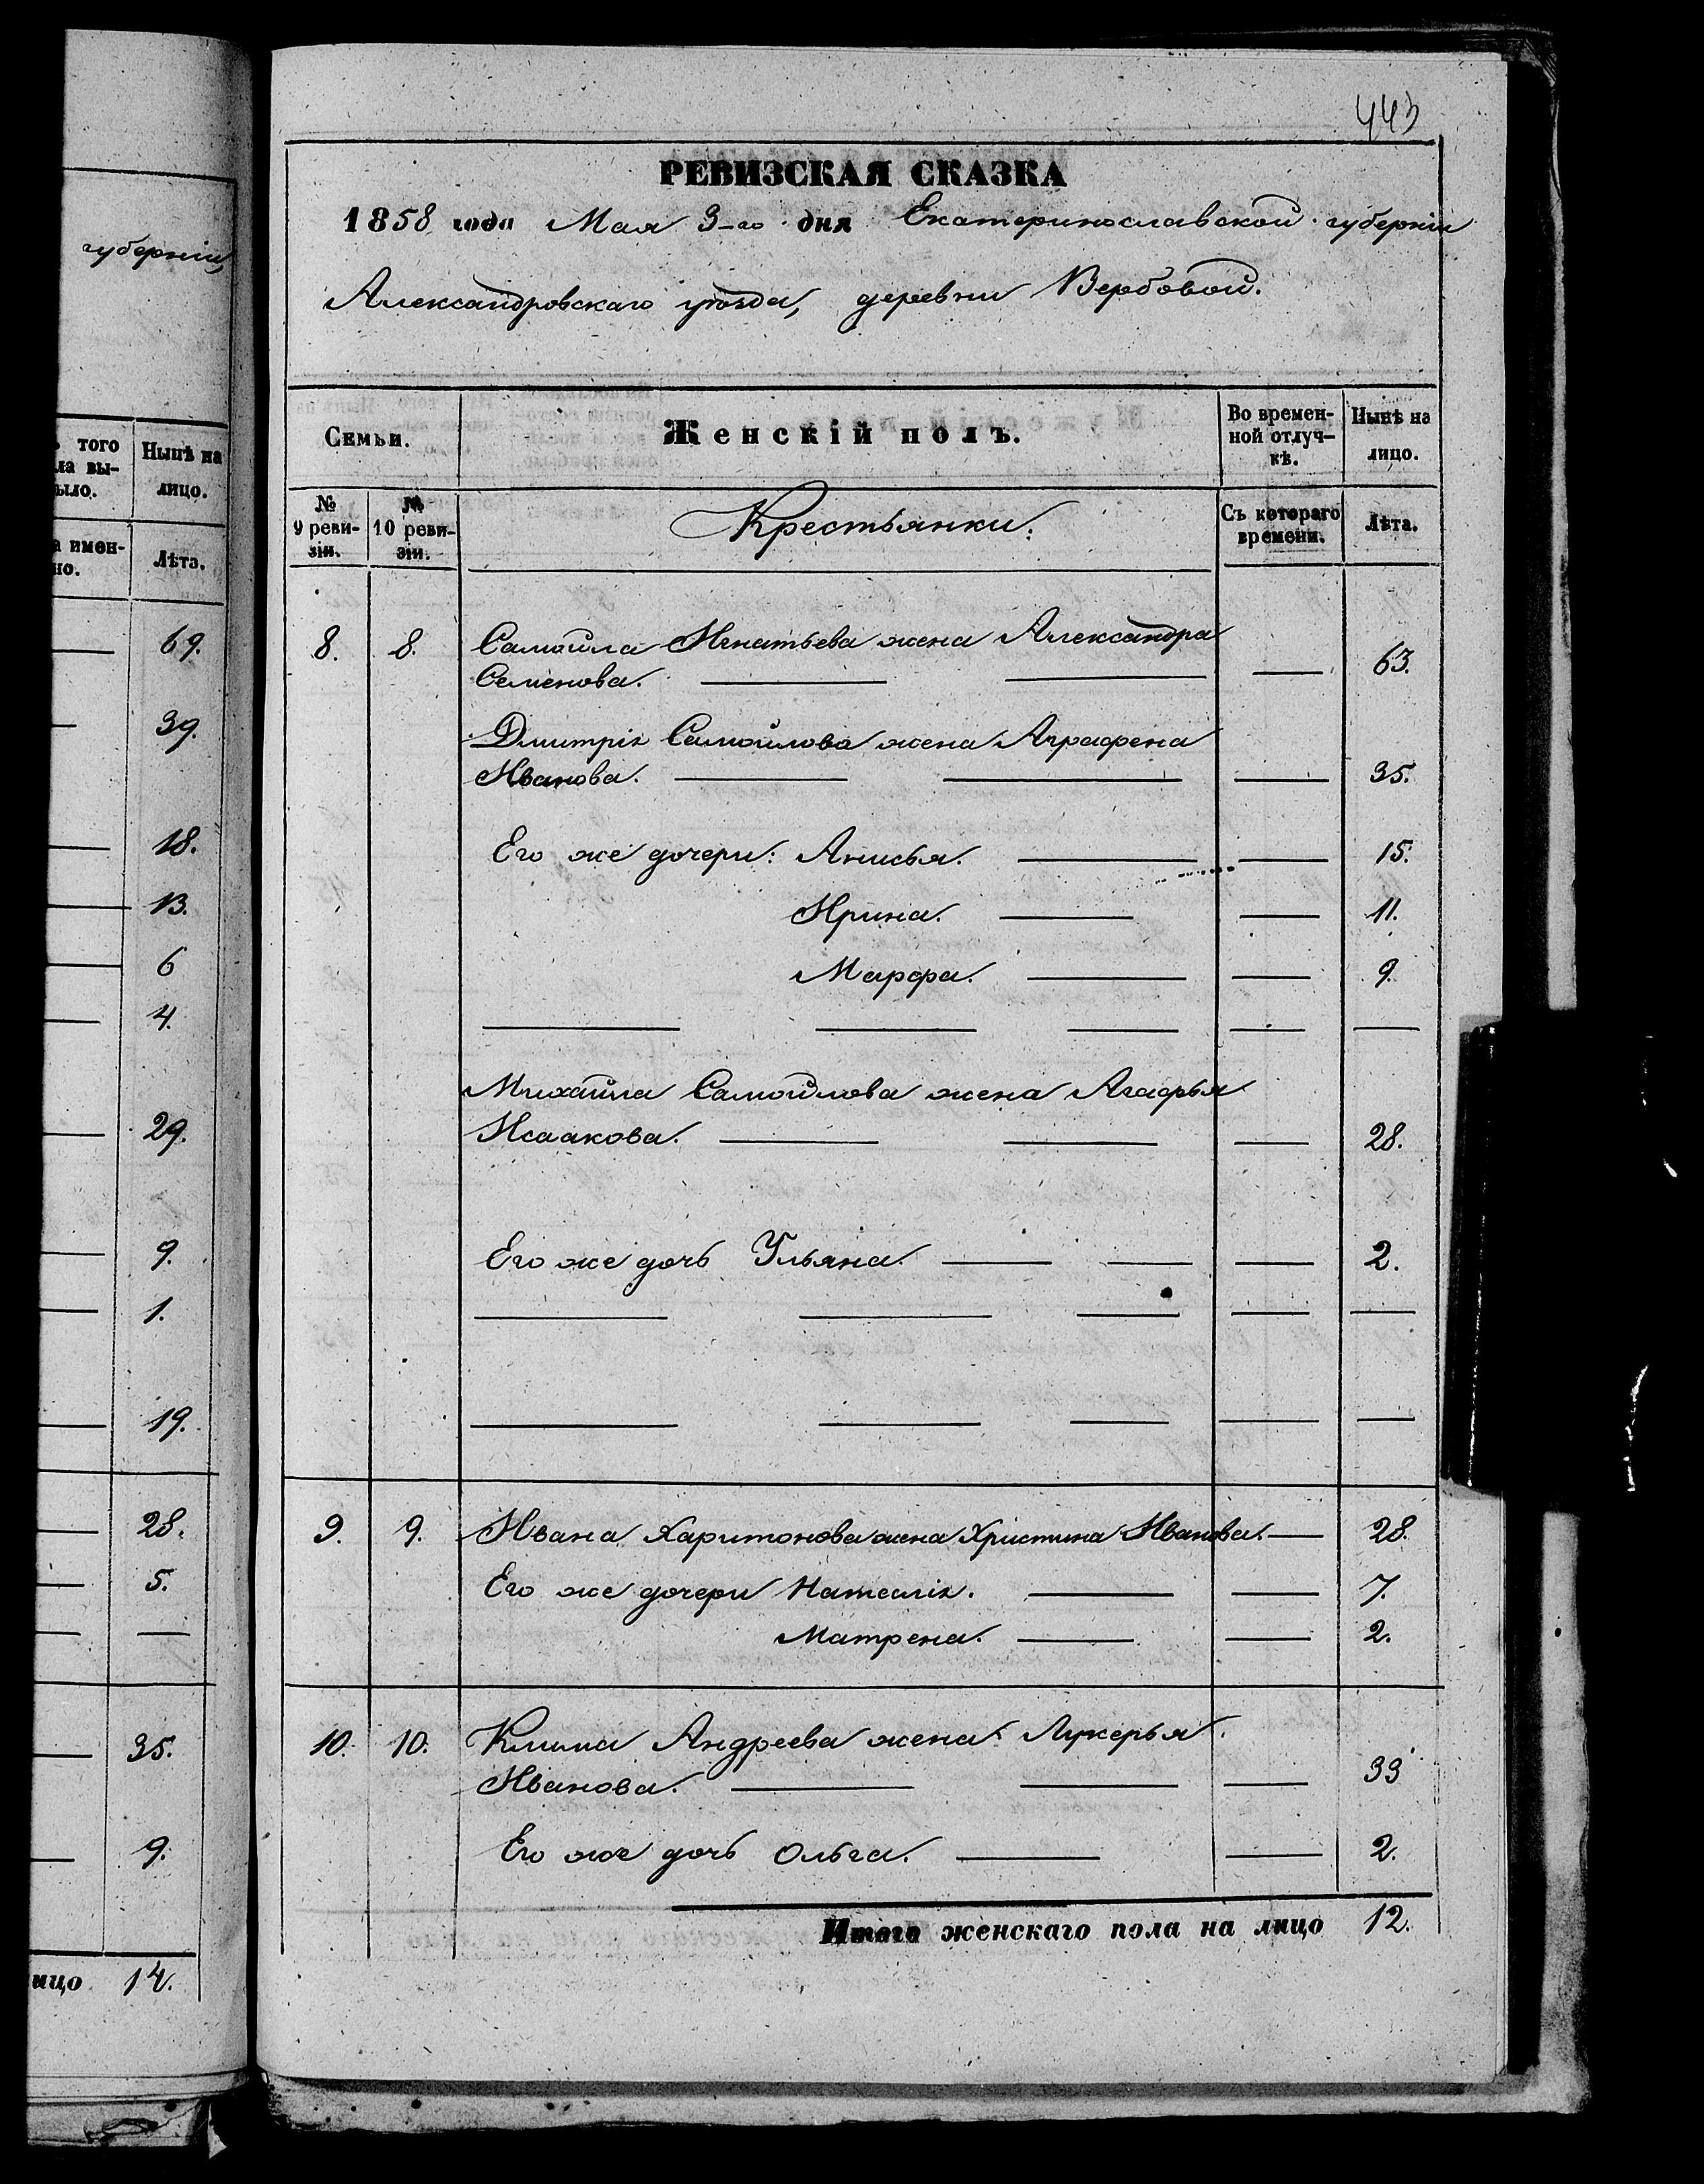 губерніи,
ъ того
ла вы-
ыло.
Нынѣ на
лицо.
а имен-
но.
Лѣта.
69.
39.
18.
13.
6
4.
29.
9.
1.
19.
28.
5.
35.
9.
ицо 14.
443
РЕВИЗСКАЯ СКАЗКА
1858 года Мая 3-го дня Екатеринославской губерніи
Александровскаго уѣзда, деревни Вербовой.
Семьи.
Женскій полъ.
Во времен-
ной отлуч-
кѣ.
Нынѣ на
лицо.
№
9 реви-
зіи.
№
10 реви-
зіи.
Крестьянки:
Съ котораго
времени.
Лѣта.
8. 8. Самойла Игнатьева жена Александра
Семенова. — — — 63.
Дмитрія Самойлова жена Аграфена
Иванова. — — — 35.
Его же дочери: Анисья. — — 15.
Ирина. — — 11.
Марфа. — — 9.
— — — — —
Михайла Самойлова жена Агафья
Исаакова. — — — 28.
Его же дочь Ульяна. — — — 2.
— — — — —
— — — — —
9. 9. Ивана Харитонова жена Христина Иванова. — 28.
Его же дочери Наталія. — — 7.
Матрена. — — 2.
10. 10. Клима Андреева жена Лукерья
Иванова. — — — 33
Его же дочь Ольга. — — 2.
Итого женскаго пола на лицо 12.